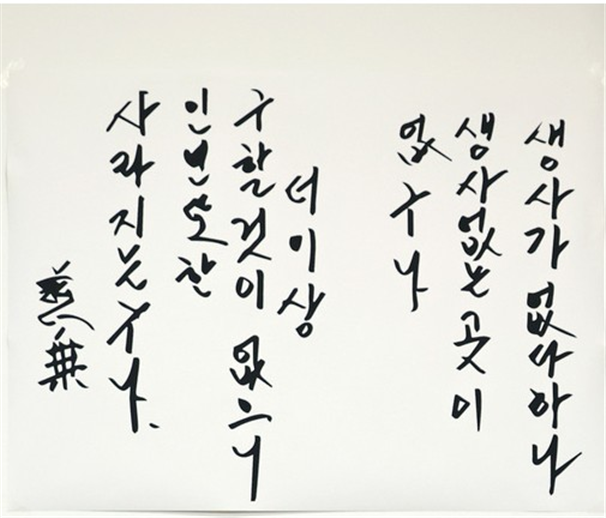 생사가 없다하나
생사없는 곳이
없구나
더이상
구할것이 없으니
인연또한
사라지는구나.